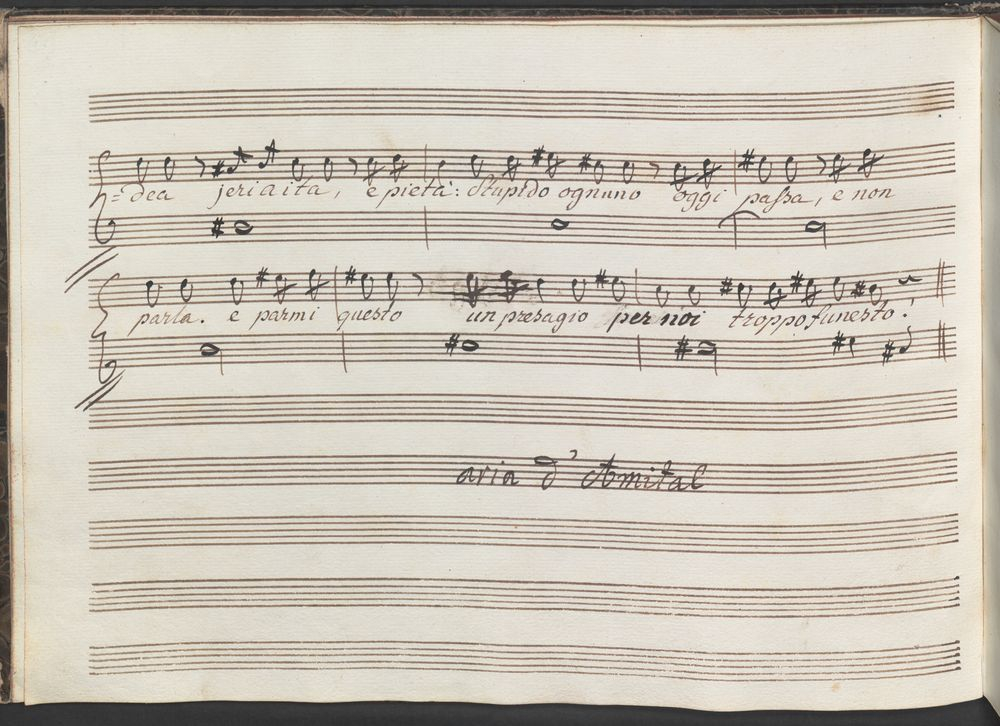 =dea jeri aita, e pietà: Stupido ognuno oggi passa, e non
parla. e parmi questo un presagio per noi troppo funesto.
aria d'Amital